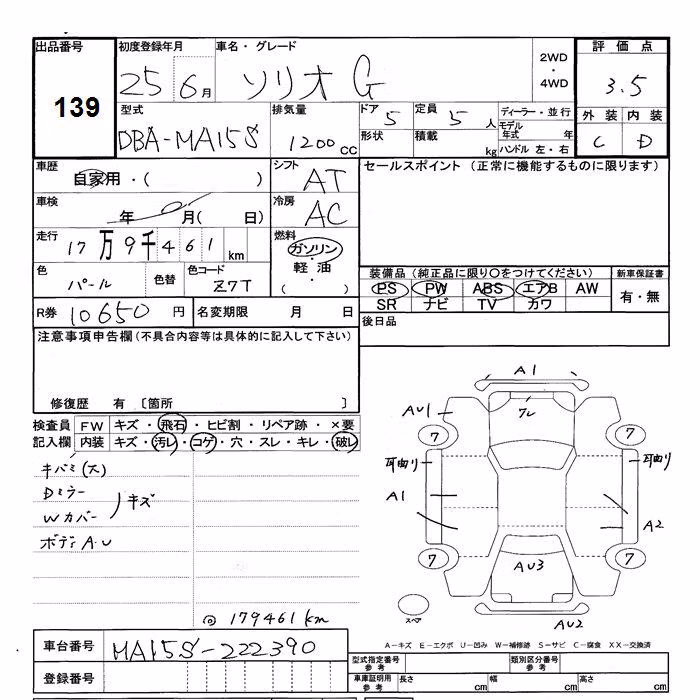 出品番号 初度登録年月 車名・グレード 2WD・4WD 評価点
139 25 6月 ソリオ G 3.5
型式 排気量 ドア 5 定員 5人 ディーラー・並行 外装 内装
DBA-MA15S 1200cc 形状 積載 kg モデル年式 年 ハンドル 左・右 C D
車歴 自家用・( ) シフト AT セールスポイント (正常に機能するものに限ります)
車検 年 月( 日) 冷房 AC
走行 17万9千461km 燃料 ガソリン・軽油 ( )
色 パール 色替 色コード Z7T 装備品 (純正品に限り〇をつけてください) 新車保証書
PS PW ABS エアB AW 有・無
SR ナビ TV カワ
R券 10650円 名変期限 月 日 後日品
注意事項申告欄(不具合内容等は具体的に記入して下さい)
修復歴 有 〔箇所 〕
検査員記入欄 FW キズ・飛石・ヒビ割・リペア跡・×要
内装 キズ・汚レ・コゲ・穴・スレ・キレ・破レ
キバミ(大)
Dミラー
Wカバー キズ
ボディA.U
◎ 179461km
A1
AU1
7 7
耳曲り 耳曲り
A1 A2
7 7
AU3
スペア
AU2
A－キズ E－エクボ U－凹み W－補修跡 S－サビ C－腐食 XX－交換済
車台番号 MA15S-222390
登録番号
型式指定番号参考 類別区分番号参考
車庫証明用参考 長さ cm 幅 cm 高さ cm